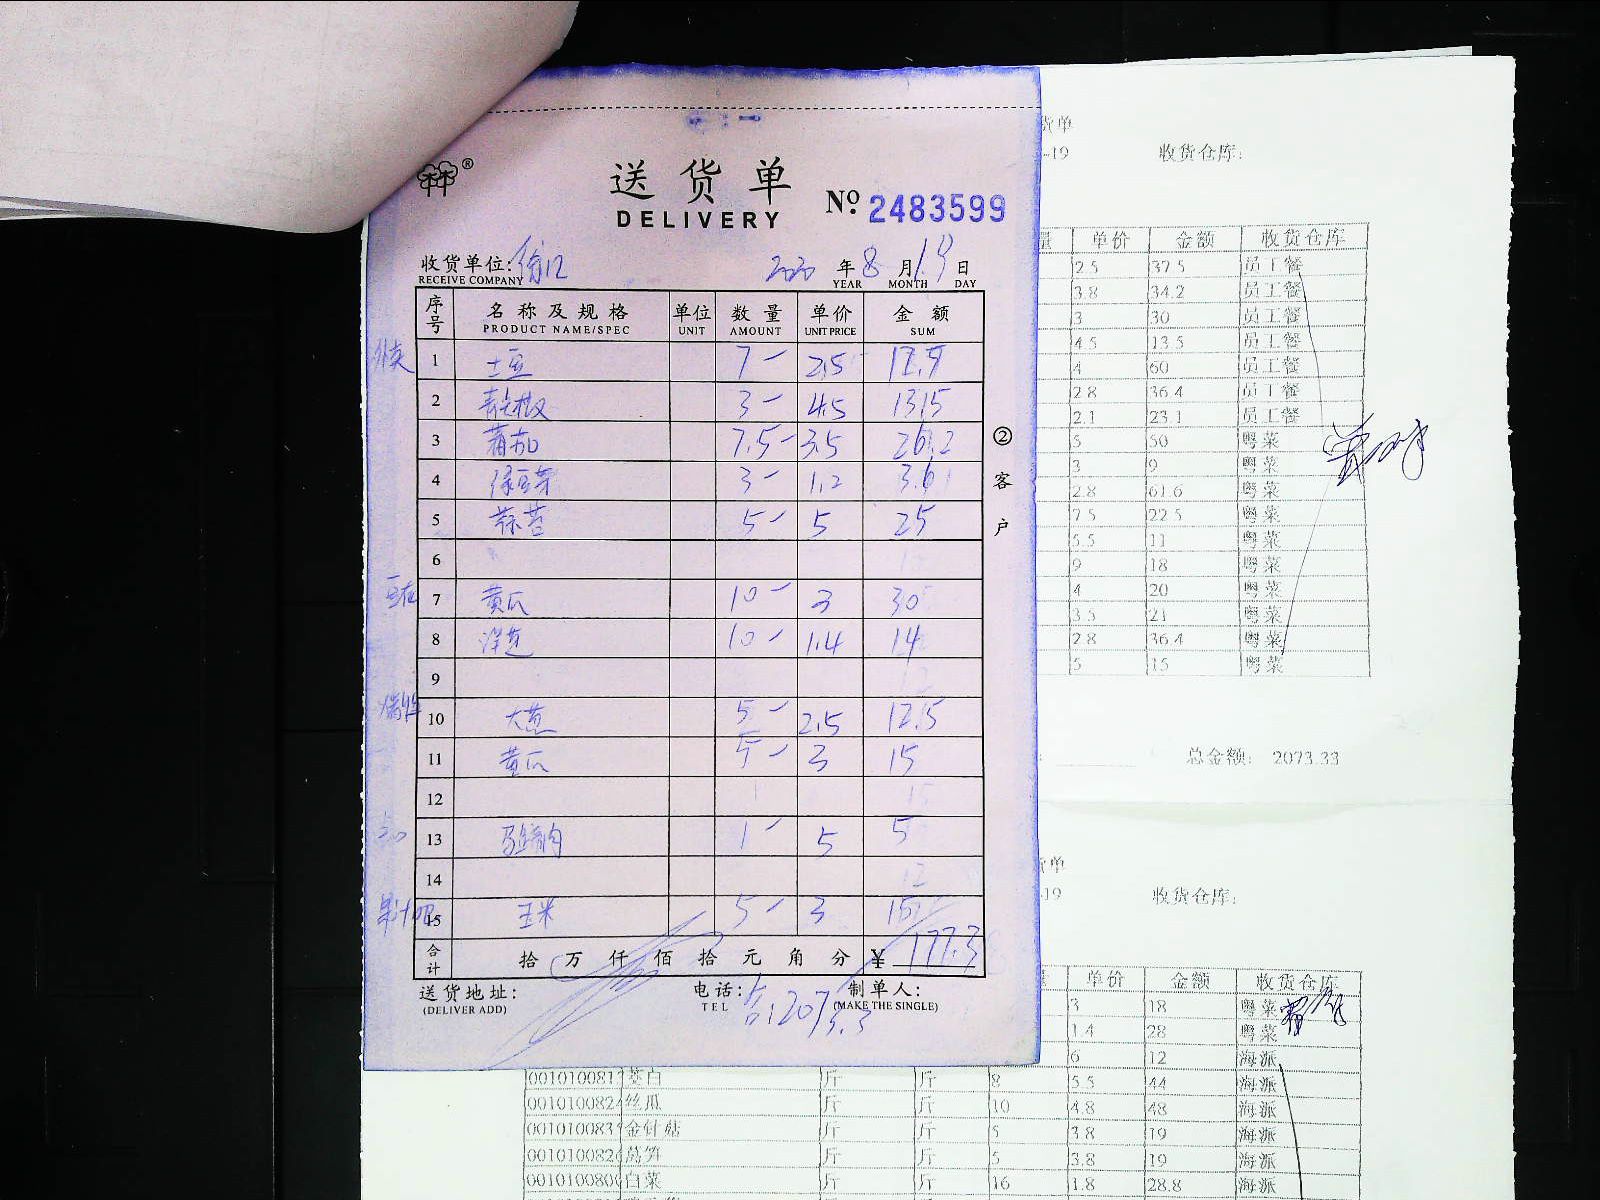 送货单
DELIVERY
№ 2483599
收货单位: 徐汇 2020 年 8 月 19 日
RECEIVE COMPANY YEAR MONTH DAY
序号 名称及规格 单位 数量 单价 金额
PRODUCT NAME/SPEC UNIT AMOUNT UNIT PRICE SUM
外卖 1 土豆 7 2.5 17.5
2 青尖椒 3 4.5 13.5
3 蕃茄 7.5 3.5 26.2
4 绿豆芽 3 1.2 3.6
5 蒜苔 5 5 25
6
7 黄瓜 10 3 30
8 洋葱 10 1.4 14
9
10 大葱 5 2.5 12.5
11 黄瓜 5 3 15
12
13 5 5
14
果汁吧 15 玉米 5 3 15
合计 拾万仟佰拾元角分 ¥ 177.3
送货地址: 电话: 制单人:
(DELIVER ADD) TEL (MAKE THE SINGLE)
合:2073.3
② 客户
货单
-19 收货仓库:
量 单价 金额 收货仓库
2.5 37.5 员工餐
3.8 34.2 员工餐
3 30 员工餐
4.5 13.5 员工餐
4 60 员工餐
2.8 36.4 员工餐
2.1 23.1 员工餐
5 50 粤菜
3 9 粤菜
2.8 61.6 粤菜
7.5 22.5 粤菜
5.5 11 粤菜
9 18 粤菜
4 20 粤菜
3.5 21 粤菜
2.8 36.4 粤菜
5 15 粤菜
总金额: 2073.33
货单
-19 收货仓库:
量 单价 金额 收货仓库
3 18 粤菜
1.4 28 粤菜
6 12 海派
001010081 茭白 斤 斤 8 5.5 44 海派
001010082 丝瓜 斤 斤 10 4.8 48 海派
001010083 金针菇 斤 斤 5 3.8 19 海派
001010082 莴笋 斤 斤 5 3.8 19 海派
001010080 白菜 斤 斤 16 1.8 28.8 海派